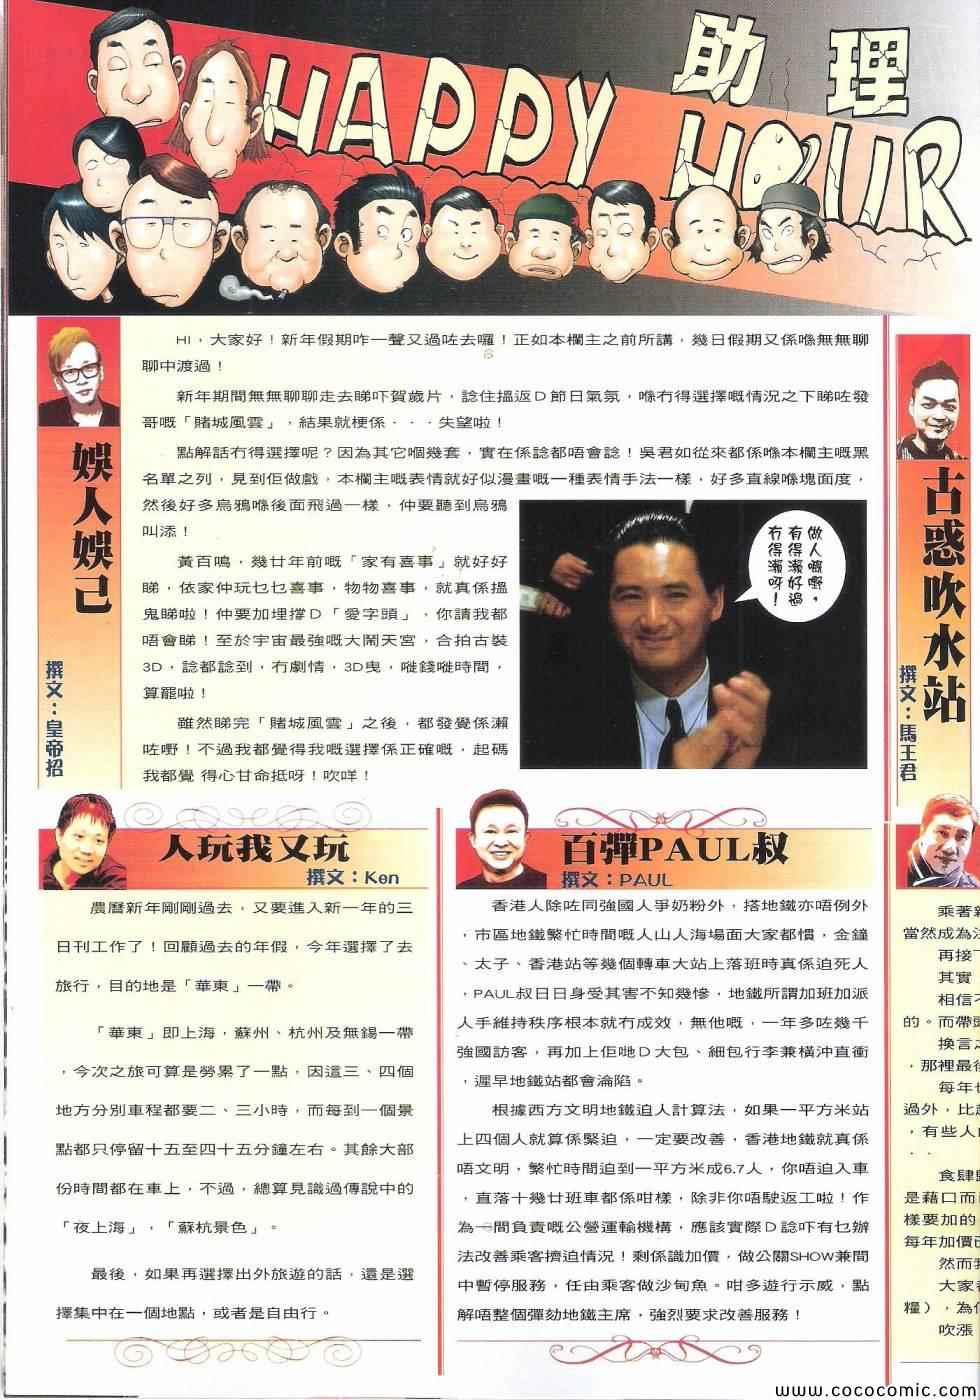 助理
HAPPY HOUR
娛人娛己
撰文：皇帝招
HI，大家好！新年假期咋一聲又過咗去囉！正如本欄主之前所講，幾日假期又係喺無無聊
聊中渡過！
新年期間無無聊聊走去睇吓賀歲片，諗住搵返D節日氣氛，喺冇得選擇嘅情況之下睇咗發
哥嘅「賭城風雲」，結果就梗係．．．失望啦！
點解話冇得選擇呢？因為其它嗰幾套，實在係諗都唔會諗！吳君如從來都係喺本欄主嘅黑
名單之列，見到佢做戲，本欄主嘅表情就好似漫畫嘅一種表情手法一樣，好多直線喺塊面度，
然後好多烏鴉喺後面飛過一樣，仲要聽到烏鴉
叫添！
黃百鳴，幾廿年前嘅「家有喜事」就好好
睇，依家仲玩乜乜喜事，物物喜事，就真係搵
鬼睇啦！仲要加埋撐D「愛字頭」，你請我都
唔會睇！至於宇宙最強嘅大鬧天宮，合拍古裝
3D，諗都諗到，冇劇情，3D曳，嘥錢嘥時間，
算罷啦！
雖然睇完「賭城風雲」之後，都發覺係瀨
咗嘢！不過我都覺得我嘅選擇係正確嘅，起碼
我都覺 得心甘命抵呀！吹咩！
做人嘅嘢，
有得瀨好過
冇得瀨呀！
古惑吹水站
撰文：馬王君
人玩我又玩
撰文：Ken
農曆新年剛剛過去，又要進入新一年的三
日刊工作了！回顧過去的年假，今年選擇了去
旅行，目的地是「華東」一帶。
「華東」即上海，蘇州、杭州及無錫一帶
，今次之旅可算是勞累了一點，因這三、四個
地方分別車程都要二、三小時，而每到一個景
點都只停留十五至四十五分鐘左右。其餘大部
份時間都在車上，不過，總算見識過傳說中的
「夜上海」，「蘇杭景色」。
最後，如果再選擇出外旅遊的話，還是選
擇集中在一個地點，或者是自由行。
百彈PAUL叔
撰文：PAUL
香港人除咗同強國人爭奶粉外，搭地鐵亦唔例外
，市區地鐵繁忙時間嘅人山人海場面大家都慣，金鐘
、太子、香港站等幾個轉車大站上落班時真係迫死人
，PAUL叔日日身受其害不知幾慘，地鐵所謂加班加派
人手維持秩序根本就冇成效，無他嘅，一年多咗幾千
強國訪客，再加上佢哋D大包、細包行李兼橫沖直衝
，遲早地鐵站都會淪陷。
根據西方文明地鐵迫人計算法，如果一平方米站
上四個人就算係緊迫，一定要改善，香港地鐵就真係
唔文明，繁忙時間迫到一平方米成6.7人，你唔迫入車
，直落十幾廿班車都係咁樣，除非你唔駛返工啦！作
為一間負責嘅公營運輸機構，應該實際D諗吓有乜辦
法改善乘客擠迫情況！剩係識加價，做公關SHOW兼間
中暫停服務，任由乘客做沙甸魚。咁多遊行示威，點
解唔整個彈劾地鐵主席，強烈要求改善服務！
乘著新
當然成為
再接下
其實
相信不
的。而帶頭
換言之
，那裡最後
每年也
過外，比起
，有些人
．．
食肆
是藉口而
樣要加的
每年加價
然而
大家
糧），為
吹漲
www.cococomic.com